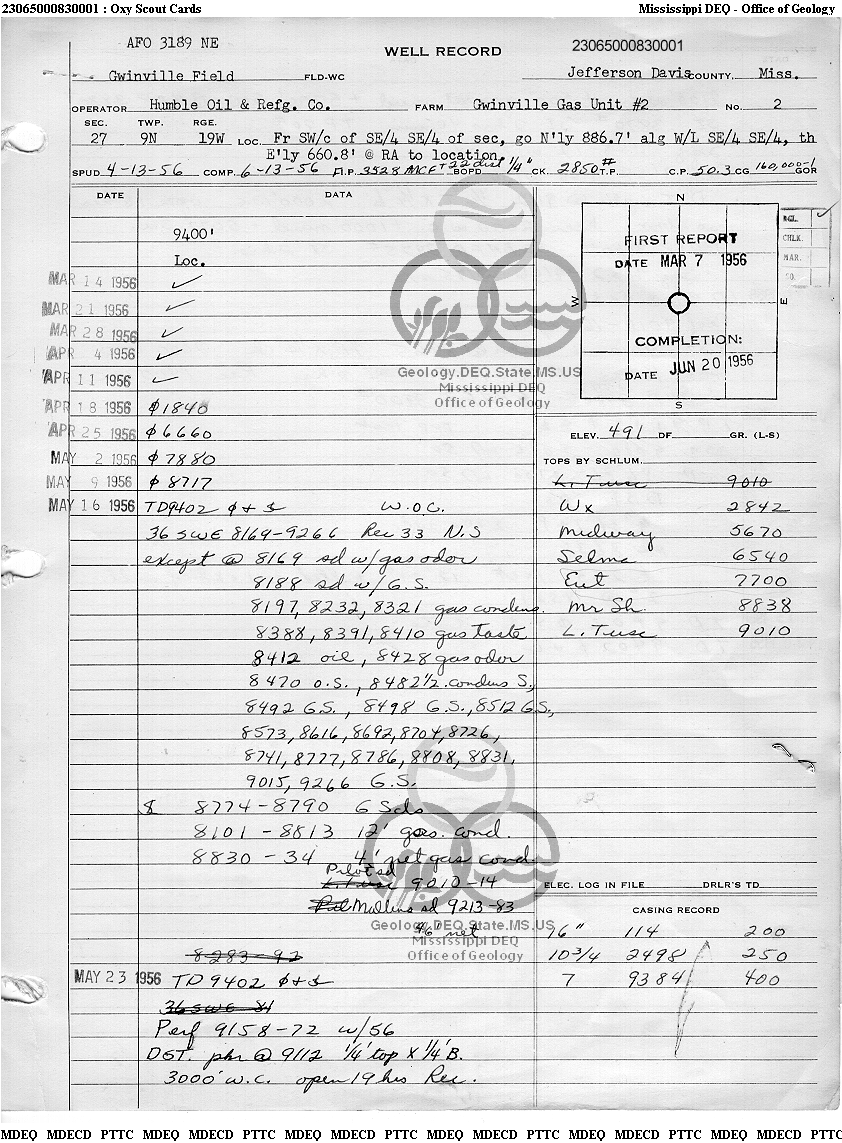 23065000830001 : Oxy Scout Cards Mississippi DEQ - Office of Geology
AFO 3189 NE
WELL RECORD
23065000830001
Gwinville Field FLD-WC Jefferson Davis COUNTY, Miss.
OPERATOR Humble Oil & Refg. Co. FARM Gwinville Gas Unit #2 No. 2
SEC. TWP. RGE.
27 9N 19W LOC. Fr SW/c of SE/4 SE/4 of sec, go N'ly 886.7' alg W/L SE/4 SE/4, th
E'ly 660.8' @ RA to location.
SPUD 4-13-56 COMP. 6-13-56 I.P. 3528 MCF + 22 dist BOPD 1/4" CK. 2850# T.P. C.P. 50.3 CG 160,000-1 GOR
DATE DATA
9400'
Loc.
MAR 14 1956 ✓
MAR 21 1956 ✓
MAR 28 1956 ✓
APR 4 1956 ✓
APR 11 1956 ✓
APR 18 1956 φ 1840
APR 25 1956 φ 6660
MAY 2 1956 φ 7880
MAY 9 1956 φ 8717
MAY 16 1956 TD 9402 φ + S W.O.C.
36 SWE 8169-9266 Rec 33 N.S
except @ 8169 sd w/gas odor
8188 sd w/ G.S.
8197, 8232, 8321 gas condens.
8388, 8391, 8410 gas taste
8412 oil, 8428 gas odor
8470 O.S., 8482 1/2 condens S.,
8492 G.S., 8498 G.S., 8512 G.S.,
8573, 8616, 8692, 8704, 8726,
8741, 8777, 8786, 8808, 8831,
9015, 9266 G.S.
8774-8790 6 Sds
8101-8813 12' gas. cond.
8830-34 4' net gas cond
Pilot sd
L. Tusc 9010-14
Mullins sd 9213-83
6' net
8283-92
MAY 23 1956 TD 9402 φ + S
36 SWE 34
Perf 9158-72 w/56
DST. pkr @ 9112 1/4' top X 1/4' B.
3000' w.c. open 19 hrs Rec.
N
W
E
S
FIRST REPORT
DATE MAR 7 1956
COMPLETION:
DATE JUN 20 1956
CHLK.
MAR.
SO.
ELEV. 491 DF. GR. (L-S)
TOPS BY SCHLUM.
L. Tusc 9010
Wx 2842
Midway 5670
Selma 6540
Eut 7700
Mr Sh. 8838
L. Tusc 9010
ELEC. LOG IN FILE DRLR'S TD
CASING RECORD
16" 114 200
10 3/4 2498 250
7 9384 400
Geology.DEQ.State.MS.US
Mississippi DEQ
Office of Geology
Geology.DEQ.State.MS.US
Mississippi DEQ
Office of Geology
MDEQ MDECD PTTC MDEQ MDECD PTTC MDEQ MDECD PTTC MDEQ MDECD PTTC MDEQ MDECD PTTC MDEQ MDECD PTTC